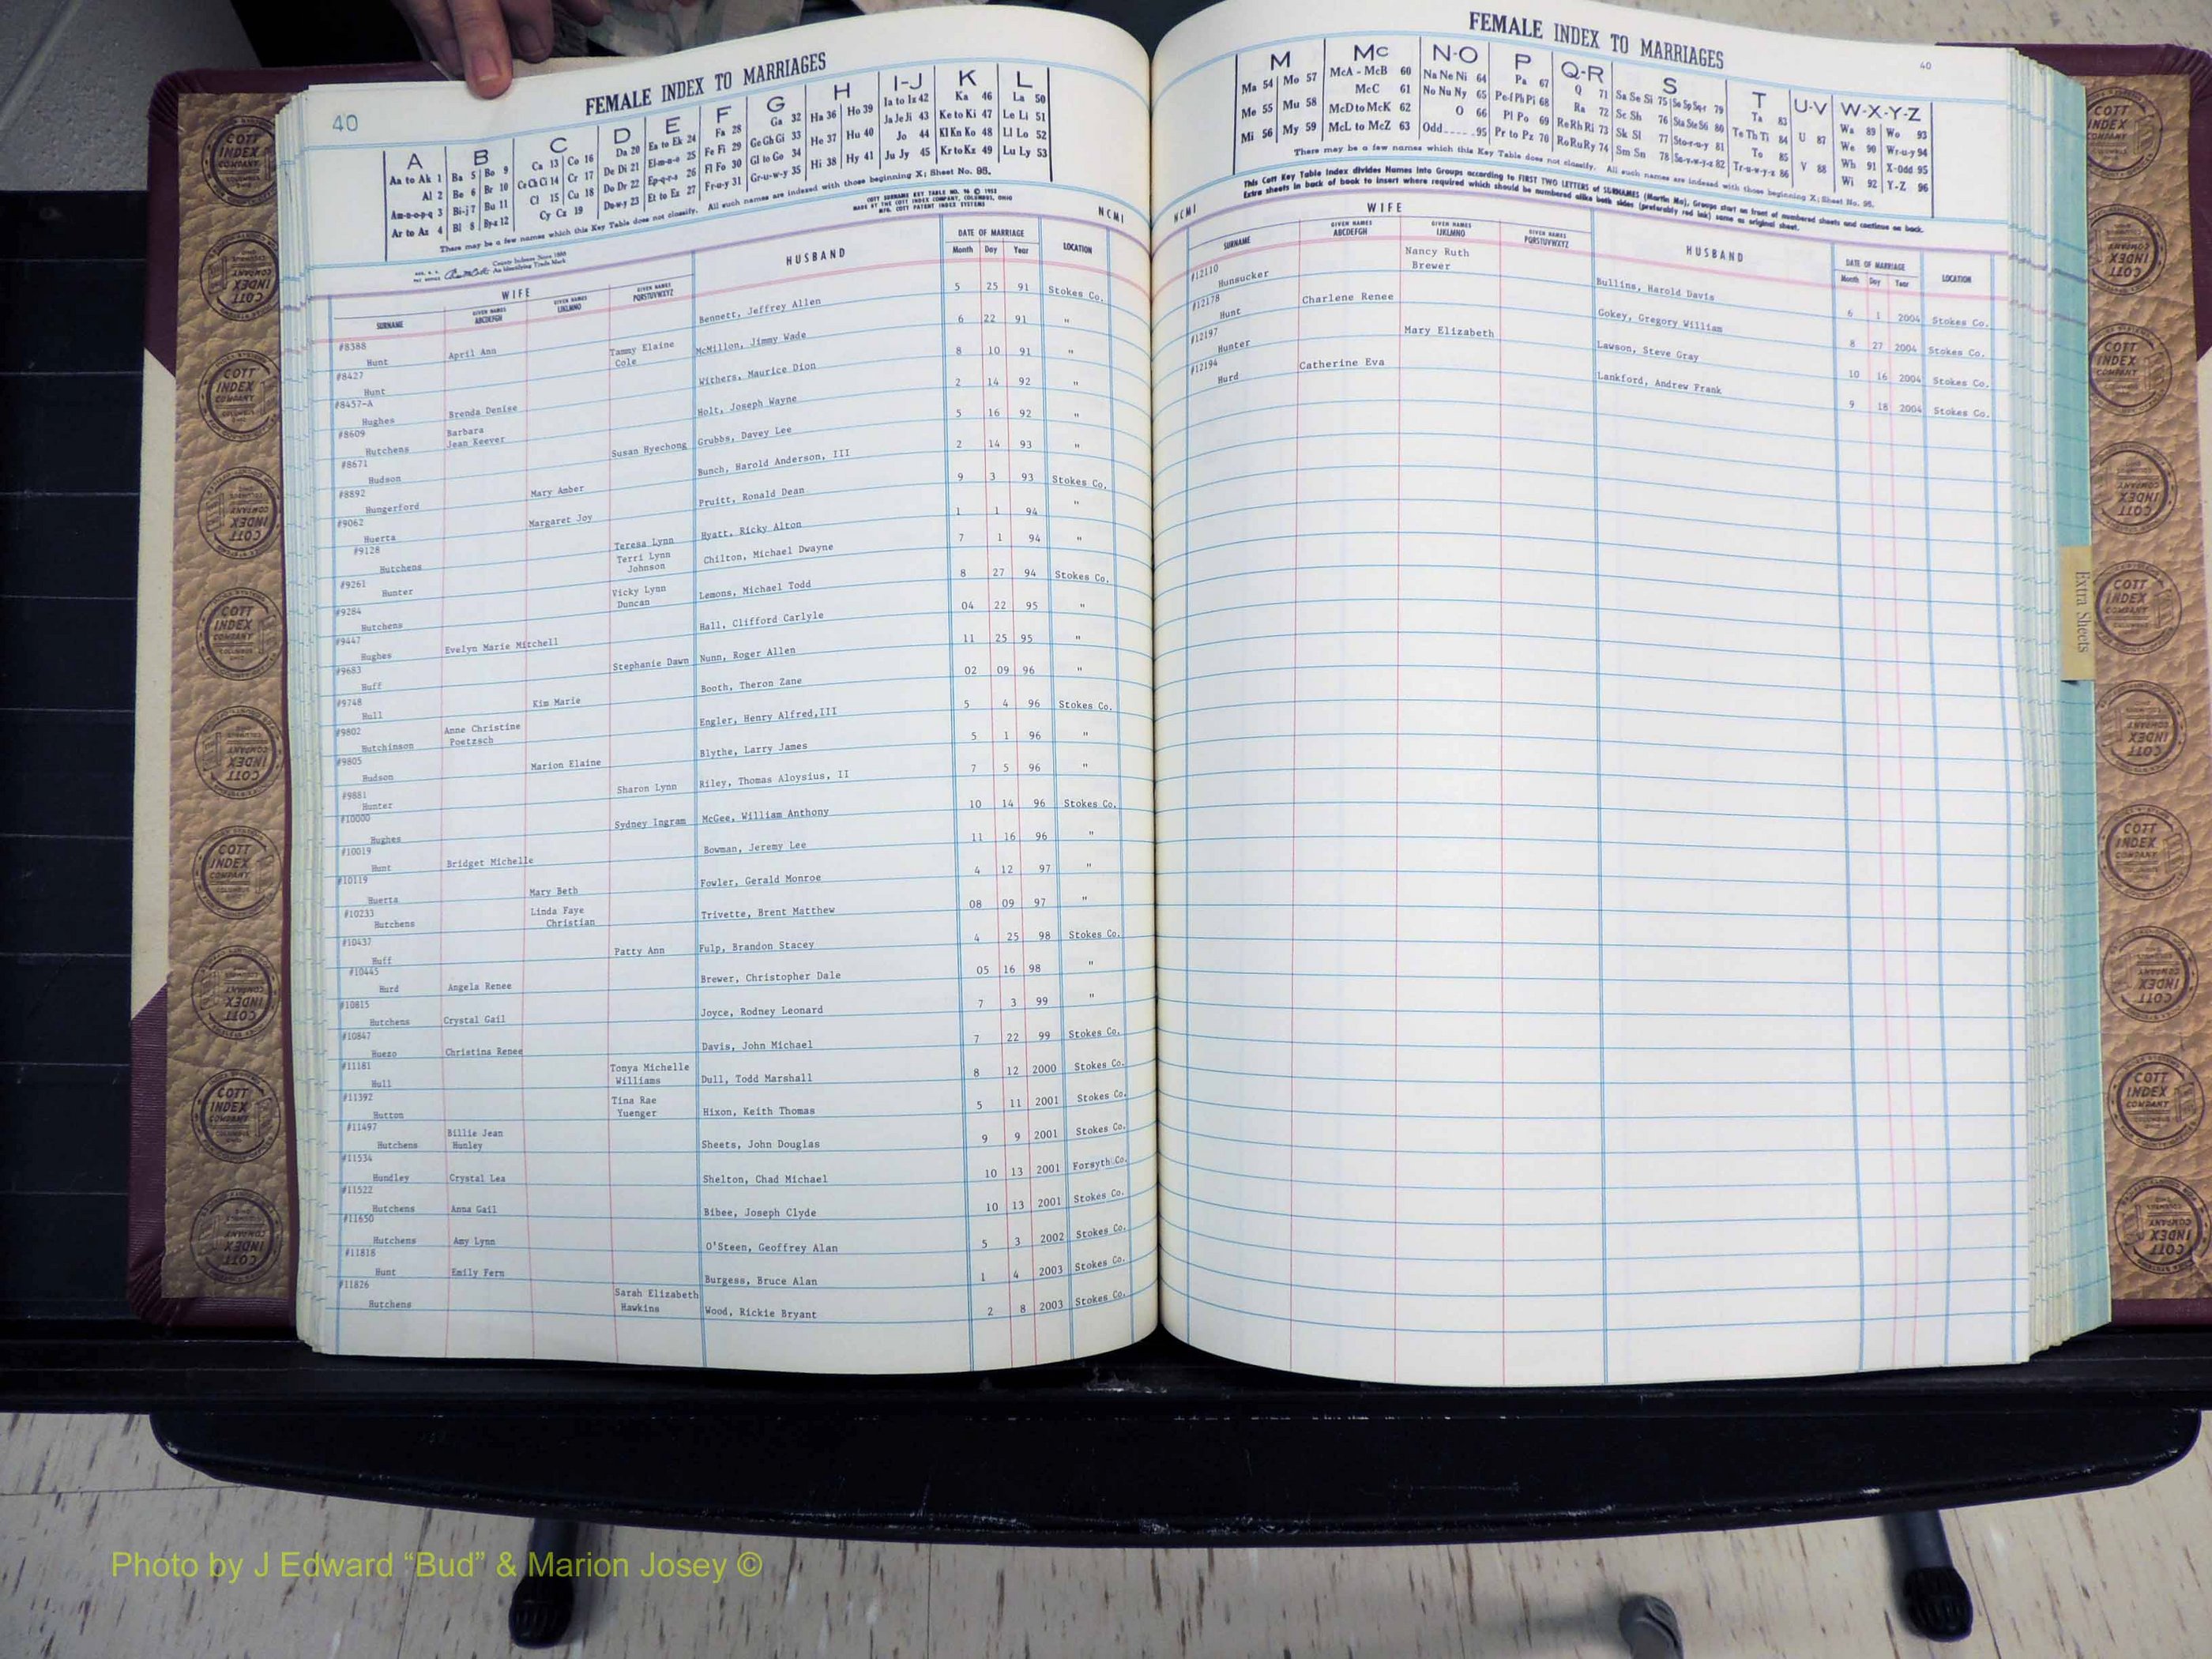 40
FEMALE INDEX TO MARRIAGES
A B C D E F G H I-J K L
Aa to Ak 1 Ba 5 Bo 9 Ca 13 Co 16 Da 20 Ea to Ek 24 Fa 28 Ga 32 Ha 36 Ho 39 Ia to Iz 42 Ka 46 La 50
Al 2 Be 6 Br 10 Ce Ch Ci 14 Cr 17 De Di 21 El-m-n-o 25 Fe Fi 29 Ge Gh Gi 33 He 37 Hu 40 Ja Je Ji 43 Ke to Ki 47 Le Li 51
Am-n-o-p-q 3 Bi-j 7 Bu 11 Cl 15 Cu 18 Do Dr 22 Ep-q-r-s 26 Fl Fo 30 Gl to Go 34 Hi 38 Hy 41 Jo 44 Kl Kn Ko 48 Ll Lo 52
Ar to Az 4 Bl 8 By-z 12 Cy Cz 19 Du-w-y 23 Et to Ez 27 Fr-u-y 31 Gr-u-w-y 35 Ju Jy 45 Kr to Kz 49 Lu Ly 53
There may be a few names which this Key Table does not classify. All such names are indexed with those beginning X; Sheet No. 95.
COTT SURNAME KEY TABLE NO. 96 © 1952
MADE BY THE COTT INDEX COMPANY, COLUMBUS, OHIO
MFG. COTT PATENT INDEX SYSTEMS
County Indexes Since 1888
An Identifying Trade Mark
NCMI
WIFE HUSBAND DATE OF MARRIAGE LOCATION
SURNAME GIVEN NAMES ABCDEFGH GIVEN NAMES IJKLMNO GIVEN NAMES PQRSTUVWXYZ Month Day Year
#8388 Hunt April Ann Bennett, Jeffrey Allen 5 25 91 Stokes Co.
#8427 Hunt Tammy Elaine Cole McMillon, Jimmy Wade 6 22 91 "
#8457-A Hughes Brenda Denise Withers, Maurice Dion 8 10 91 "
#8609 Hutchens Barbara Jean Keever Holt, Joseph Wayne 2 14 92 "
#8671 Hudson Susan Hyechong Grubbs, Davey Lee 5 16 92 "
#8892 Hungerford Mary Amber Bunch, Harold Anderson, III 2 14 93 "
#9062 Huerta Margaret Joy Pruitt, Ronald Dean 9 3 93 Stokes Co.
#9128 Hutchens Teresa Lynn Hyatt, Ricky Alton 1 1 94 "
#9261 Hunter Terri Lynn Johnson Chilton, Michael Dwayne 7 1 94 "
#9284 Hutchens Vicky Lynn Duncan Lemons, Michael Todd 8 27 94 Stokes Co.
#9447 Hughes Evelyn Marie Mitchell Hall, Clifford Carlyle 04 22 95 "
#9683 Huff Stephanie Dawn Nunn, Roger Allen 11 25 95 "
#9748 Hull Kim Marie Booth, Theron Zane 02 09 96 "
#9802 Hutchinson Anne Christine Poetzsch Engler, Henry Alfred,III 5 4 96 Stokes Co.
#9805 Hudson Marion Elaine Blythe, Larry James 5 1 96 "
#9881 Hunter Sharon Lynn Riley, Thomas Aloysius, II 7 5 96 "
#10000 Hughes Sydney Ingram McGee, William Anthony 10 14 96 Stokes Co.
#10019 Hunt Bridget Michelle Bowman, Jeremy Lee 11 16 96 "
#10119 Huerta Mary Beth Fowler, Gerald Monroe 4 12 97 "
#10233 Hutchens Linda Faye Christian Trivette, Brent Matthew 08 09 97 "
#10437 Huff Patty Ann Fulp, Brandon Stacey 4 25 98 Stokes Co.
#10445 Hurd Angela Renee Brewer, Christopher Dale 05 16 98 "
#10815 Hutchens Crystal Gail Joyce, Rodney Leonard 7 3 99 "
#10847 Huezo Christina Renee Davis, John Michael 7 22 99 Stokes Co.
#11181 Hull Tonya Michelle Williams Dull, Todd Marshall 8 12 2000 Stokes Co.
#11392 Hutton Tina Rae Yuenger Hixon, Keith Thomas 5 11 2001 Stokes Co.
#11497 Hutchens Billie Jean Hunley Sheets, John Douglas 9 9 2001 Stokes Co.
#11534 Hundley Crystal Lea Shelton, Chad Michael 10 13 2001 Forsyth Co.
#11522 Hutchens Anna Gail Bibee, Joseph Clyde 10 13 2001 Stokes Co.
#11650 Hutchens Amy Lynn O'Steen, Geoffrey Alan 5 3 2002 Stokes Co.
#11818 Hunt Emily Fern Burgess, Bruce Alan 1 4 2003 Stokes Co.
#11826 Hutchens Sarah Elizabeth Hawkins Wood, Rickie Bryant 2 8 2003 Stokes Co.
FEMALE INDEX TO MARRIAGES
40
M Mc N-O P Q-R S T U-V W-X-Y-Z
Ma 54 Mo 57 McA - McB 60 Na Ne Ni 64 Pa 67 Q 71 Sa Se Si 75 Se Sp Sq-r 79 Ta 83 Wa 89 Wo 93
Me 55 Mu 58 McC 61 No Nu Ny 65 Pe-f Ph Pi 68 Ra 72 Sc Sh 76 Sta Ste Sti 80 Te Th Ti 84 U 87 We 90 Wr-u-y 94
Mi 56 My 59 McD to McK 62 O 66 Pl Po 69 Re Rh Ri 73 Sk Sl 77 Sto-r-u-y 81 To 85 V 88 Wh 91 X-Odd 95
McL to McZ 63 Odd 95 Pr to Pz 70 Ro Ru Ry 74 Sm Sn 78 Su-v-w-y-z 82 Tr-u-w-y-z 86 Wi 92 Y-Z 96
There may be a few names which this Key Table does not classify. All such names are indexed with those beginning X; Sheet No. 95.
This Cott Key Table Index divides Names into Groups according to FIRST TWO LETTERS of SURNAMES (Martin Ma), Groups start on front of numbered sheets and continue on back.
Extra sheets in back of book to insert where required which should be numbered alike both sides (preferably red ink) same as original sheet.
NCMI
WIFE HUSBAND DATE OF MARRIAGE LOCATION
SURNAME GIVEN NAMES ABCDEFGH GIVEN NAMES IJKLMNO GIVEN NAMES PQRSTUVWXYZ Month Day Year
#12110 Hunsucker Nancy Ruth Brewer Bullins, Harold Davis 6 1 2004 Stokes Co.
#12178 Hunt Charlene Renee Gokey, Gregory William 8 27 2004 Stokes Co.
#12197 Hunter Mary Elizabeth Lawson, Steve Gray 10 16 2004 Stokes Co.
#12194 Hurd Catherine Eva Lankford, Andrew Frank 9 18 2004 Stokes Co.
Extra Sheets
COTT INDEX COMPANY
Photo by J Edward “Bud” & Marion Josey ©